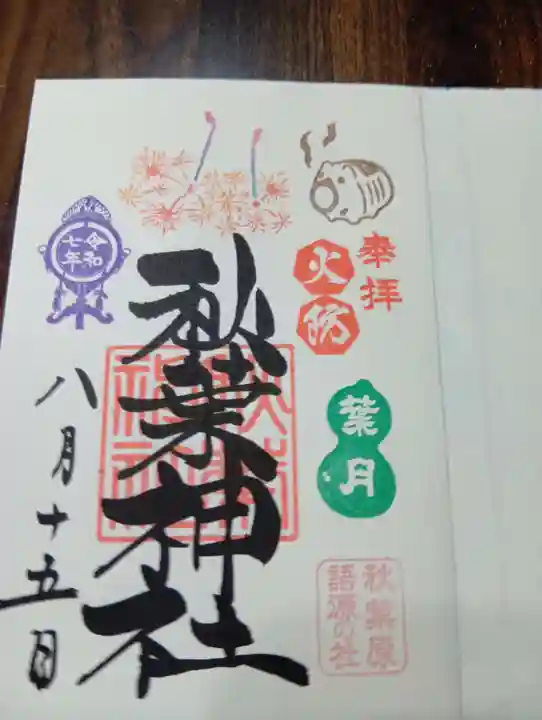 奉拝
火防
葉月
秋葉原
語源の社
秋葉神社
秋葉
神社
令和
七年
八月十五日